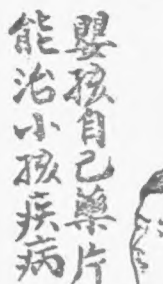 嬰孩自己藥片
能治小孩疾病